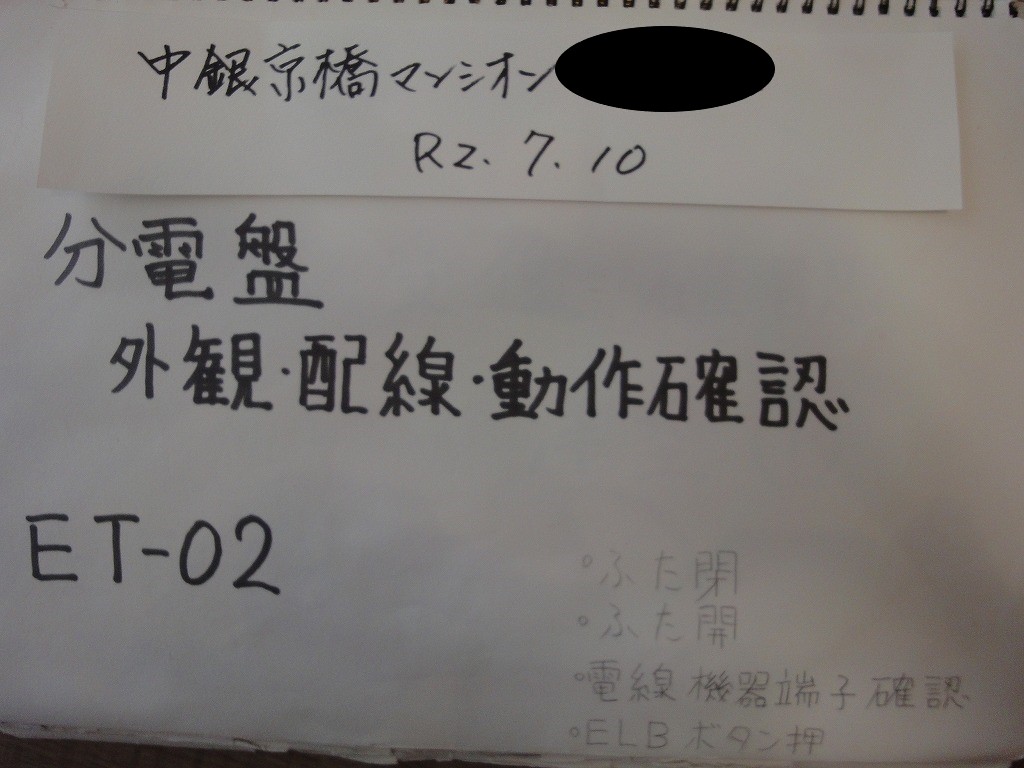 中銀京橋マンシオン
R2.7.10
分電盤
外観・配線・動作確認
ET-02
°ふた閉
°ふた開
°電線機器端子確認
°ELBボタン押